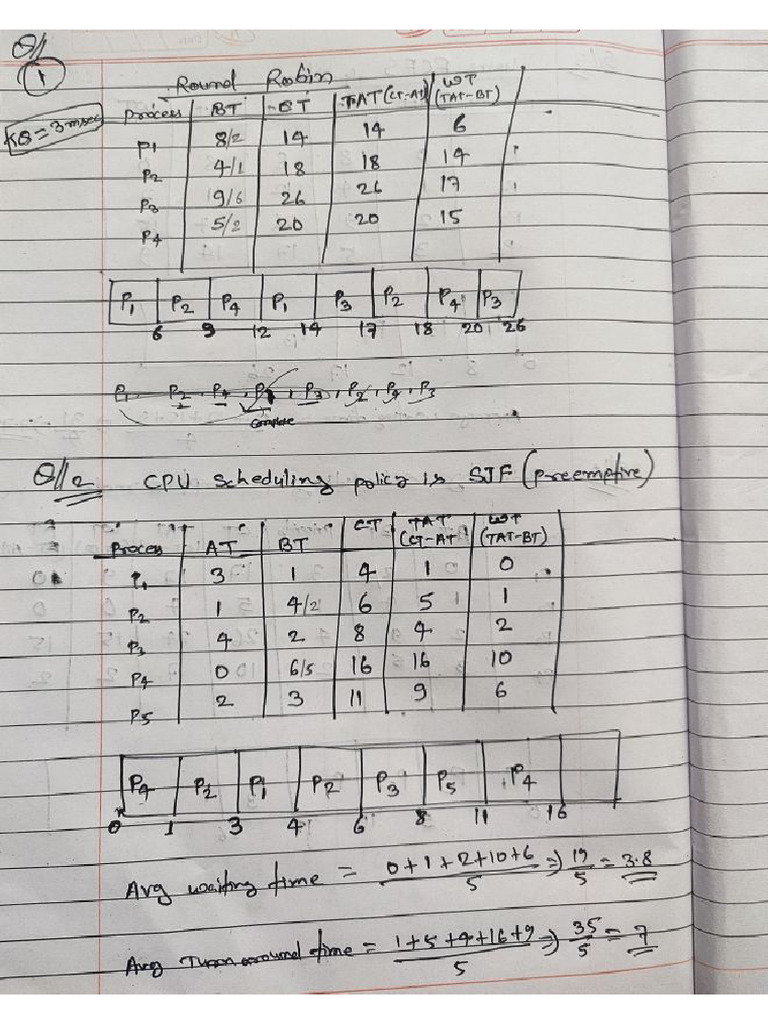 Q1/
1
Round Robin
TQ = 3 msec
Process BT BT TAT (CT-AT) WT (TAT-BT)
P1 8/2 14 14 6
P2 4/1 18 18 14
P3 9/6 26 26 17
P4 5/2 20 20 15
P1 P2 P4 P1 P3 P2 P4 P3
6 9 12 14 17 18 20 26
P1 P2, P4, P1, P3, P2, P4, P3
Complete
Q/2 CPU scheduling policy is SJF (preemptive)
Process AT BT CT TAT (CT-AT WT (TAT-BT)
P1 3 1 4 1 0
P2 1 4/2 6 5 1
P3 4 2 8 4 2
P4 0 6/5 16 16 10
P5 2 3 11 9 6
P4 P2 P1 P2 P3 P5 P4
0 1 3 4 6 8 11 16
Avg waiting time = 0+1+2+10+6/5 ⇒ 19/5 = 3.8
Avg Turn around time = 1+5+4+16+9/5 ⇒ 35/5 = 7